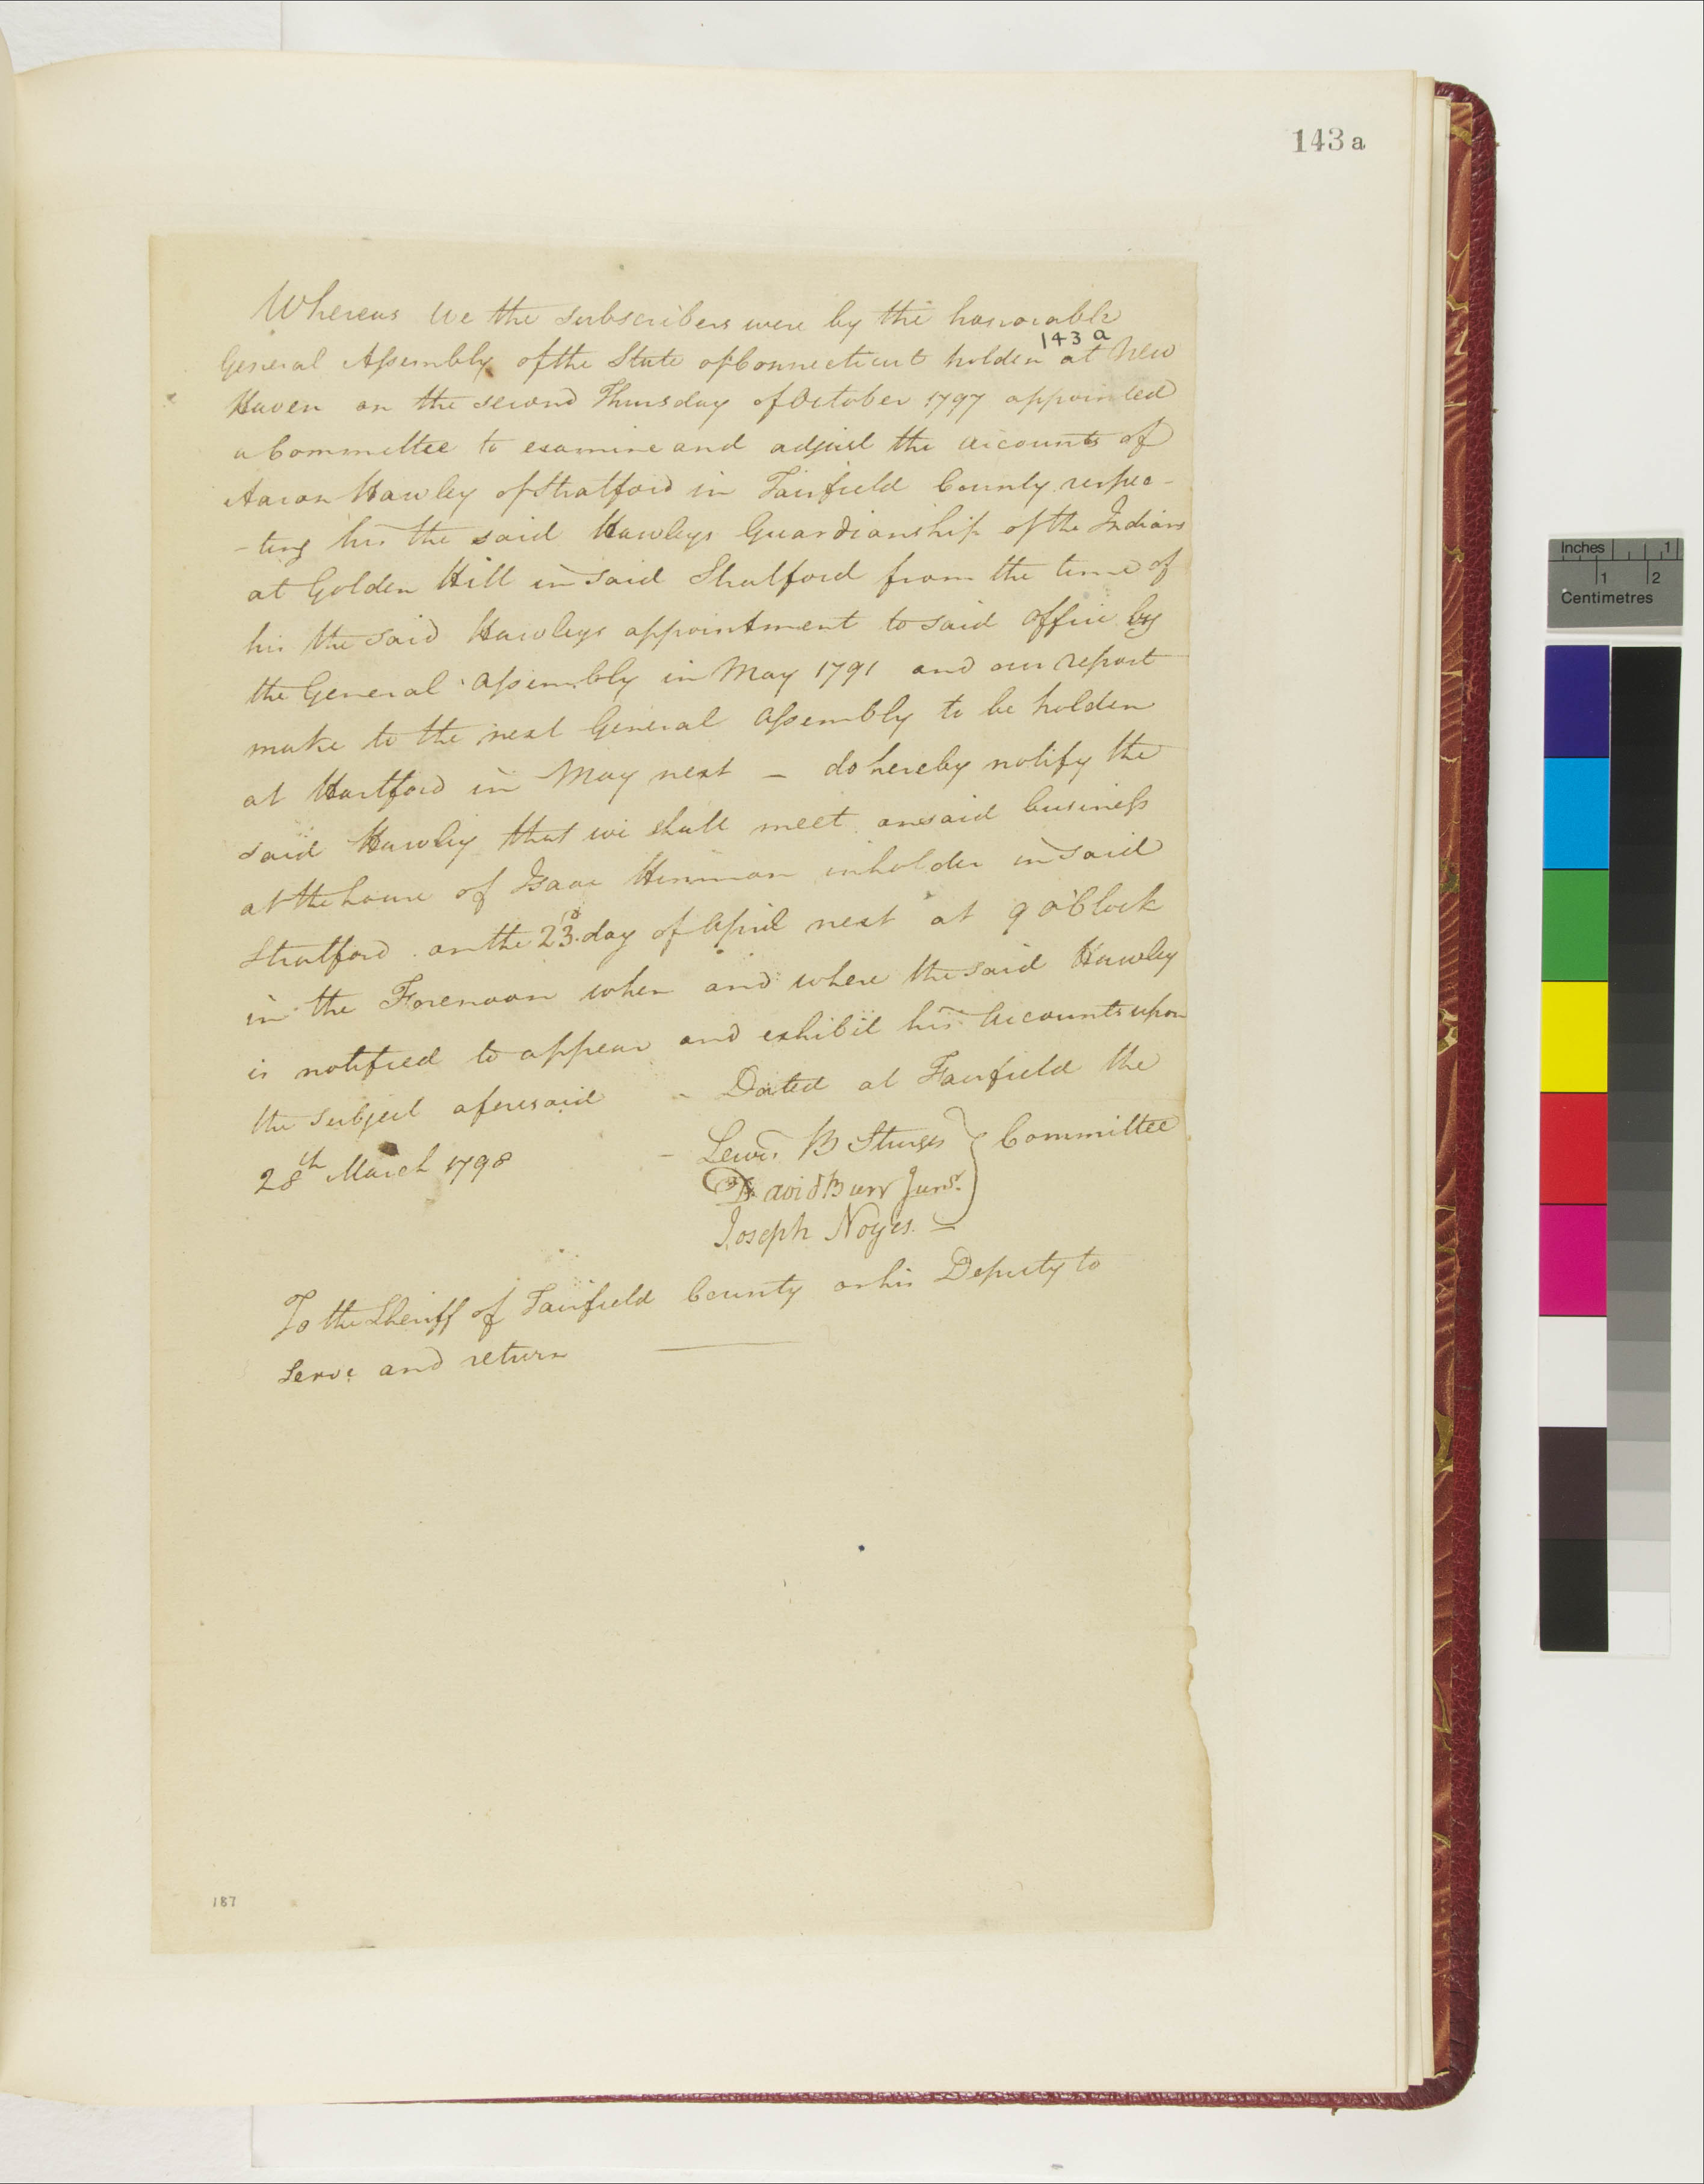 143 a
Whereas We the subscribers were by the honorable
143 a
General Assembly of the State of Connecticut holden at New
Haven on the second Thursday of October 1797 appointed
a Committee to examine and adjust the accounts of
Aaron Hawley of Stratford in Fairfield County respec-
-ting his the said Hawleys Guardianship of the Indians
at Golden Hill in said Stratford from the time of
his the said Hawleys appointment to said office by
the General Assembly in May 1791 and our report
make to the next General Assembly to be holden
at Hartford in May next – do hereby notify the
said Hawley that we shall meet on said business
at the house of Isaac Hinman inholder in said
Stratford on the 23d. day of April next at 9 oClock
in the Forenoon when and where the said Hawley
is notified to appear and exhibit his accounts upon
the subject aforesaid - Dated at Fairfield the
28th March 1798 – Lewis B Sturges } Committee
David Burr Junr.
Joseph Noyes.
To the Sheriff of Fairfield County or his Deputy to
serve and return
187
Inches 1
1 2
Centimetres